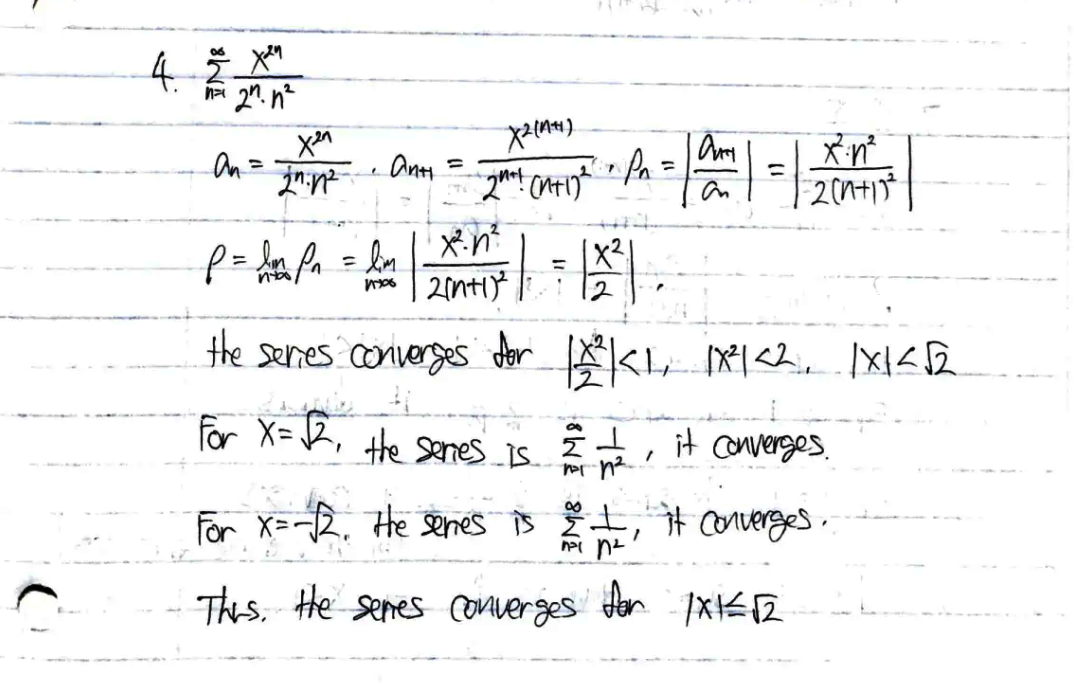 4. $\sum_{n=1}^{\infty} \frac{x^{2n}}{2^n \cdot n^2}$
$a_n = \frac{x^{2n}}{2^n \cdot n^2}, a_{n+1} = \frac{x^{2(n+1)}}{2^{n+1} \cdot (n+1)^2}, \rho_n = \left|\frac{a_{n+1}}{a_n}\right| = \left|\frac{x^2 \cdot n^2}{2(n+1)^2}\right|$
$\rho = \lim_{n \to \infty} \rho_n = \lim_{n \to \infty} \left|\frac{x^2 \cdot n^2}{2(n+1)^2}\right| = \left|\frac{x^2}{2}\right|.$
the series converges for $\left|\frac{x^2}{2}\right| < 1, |x^2| < 2, |x| < \sqrt{2}$
For $x = \sqrt{2}$, the series is $\sum_{n=1}^{\infty} \frac{1}{n^2}$, it converges.
For $x = -\sqrt{2}$, the series is $\sum_{n=1}^{\infty} \frac{1}{n^2}$, it converges.
Thus, the series converges for $|x| \leq \sqrt{2}$